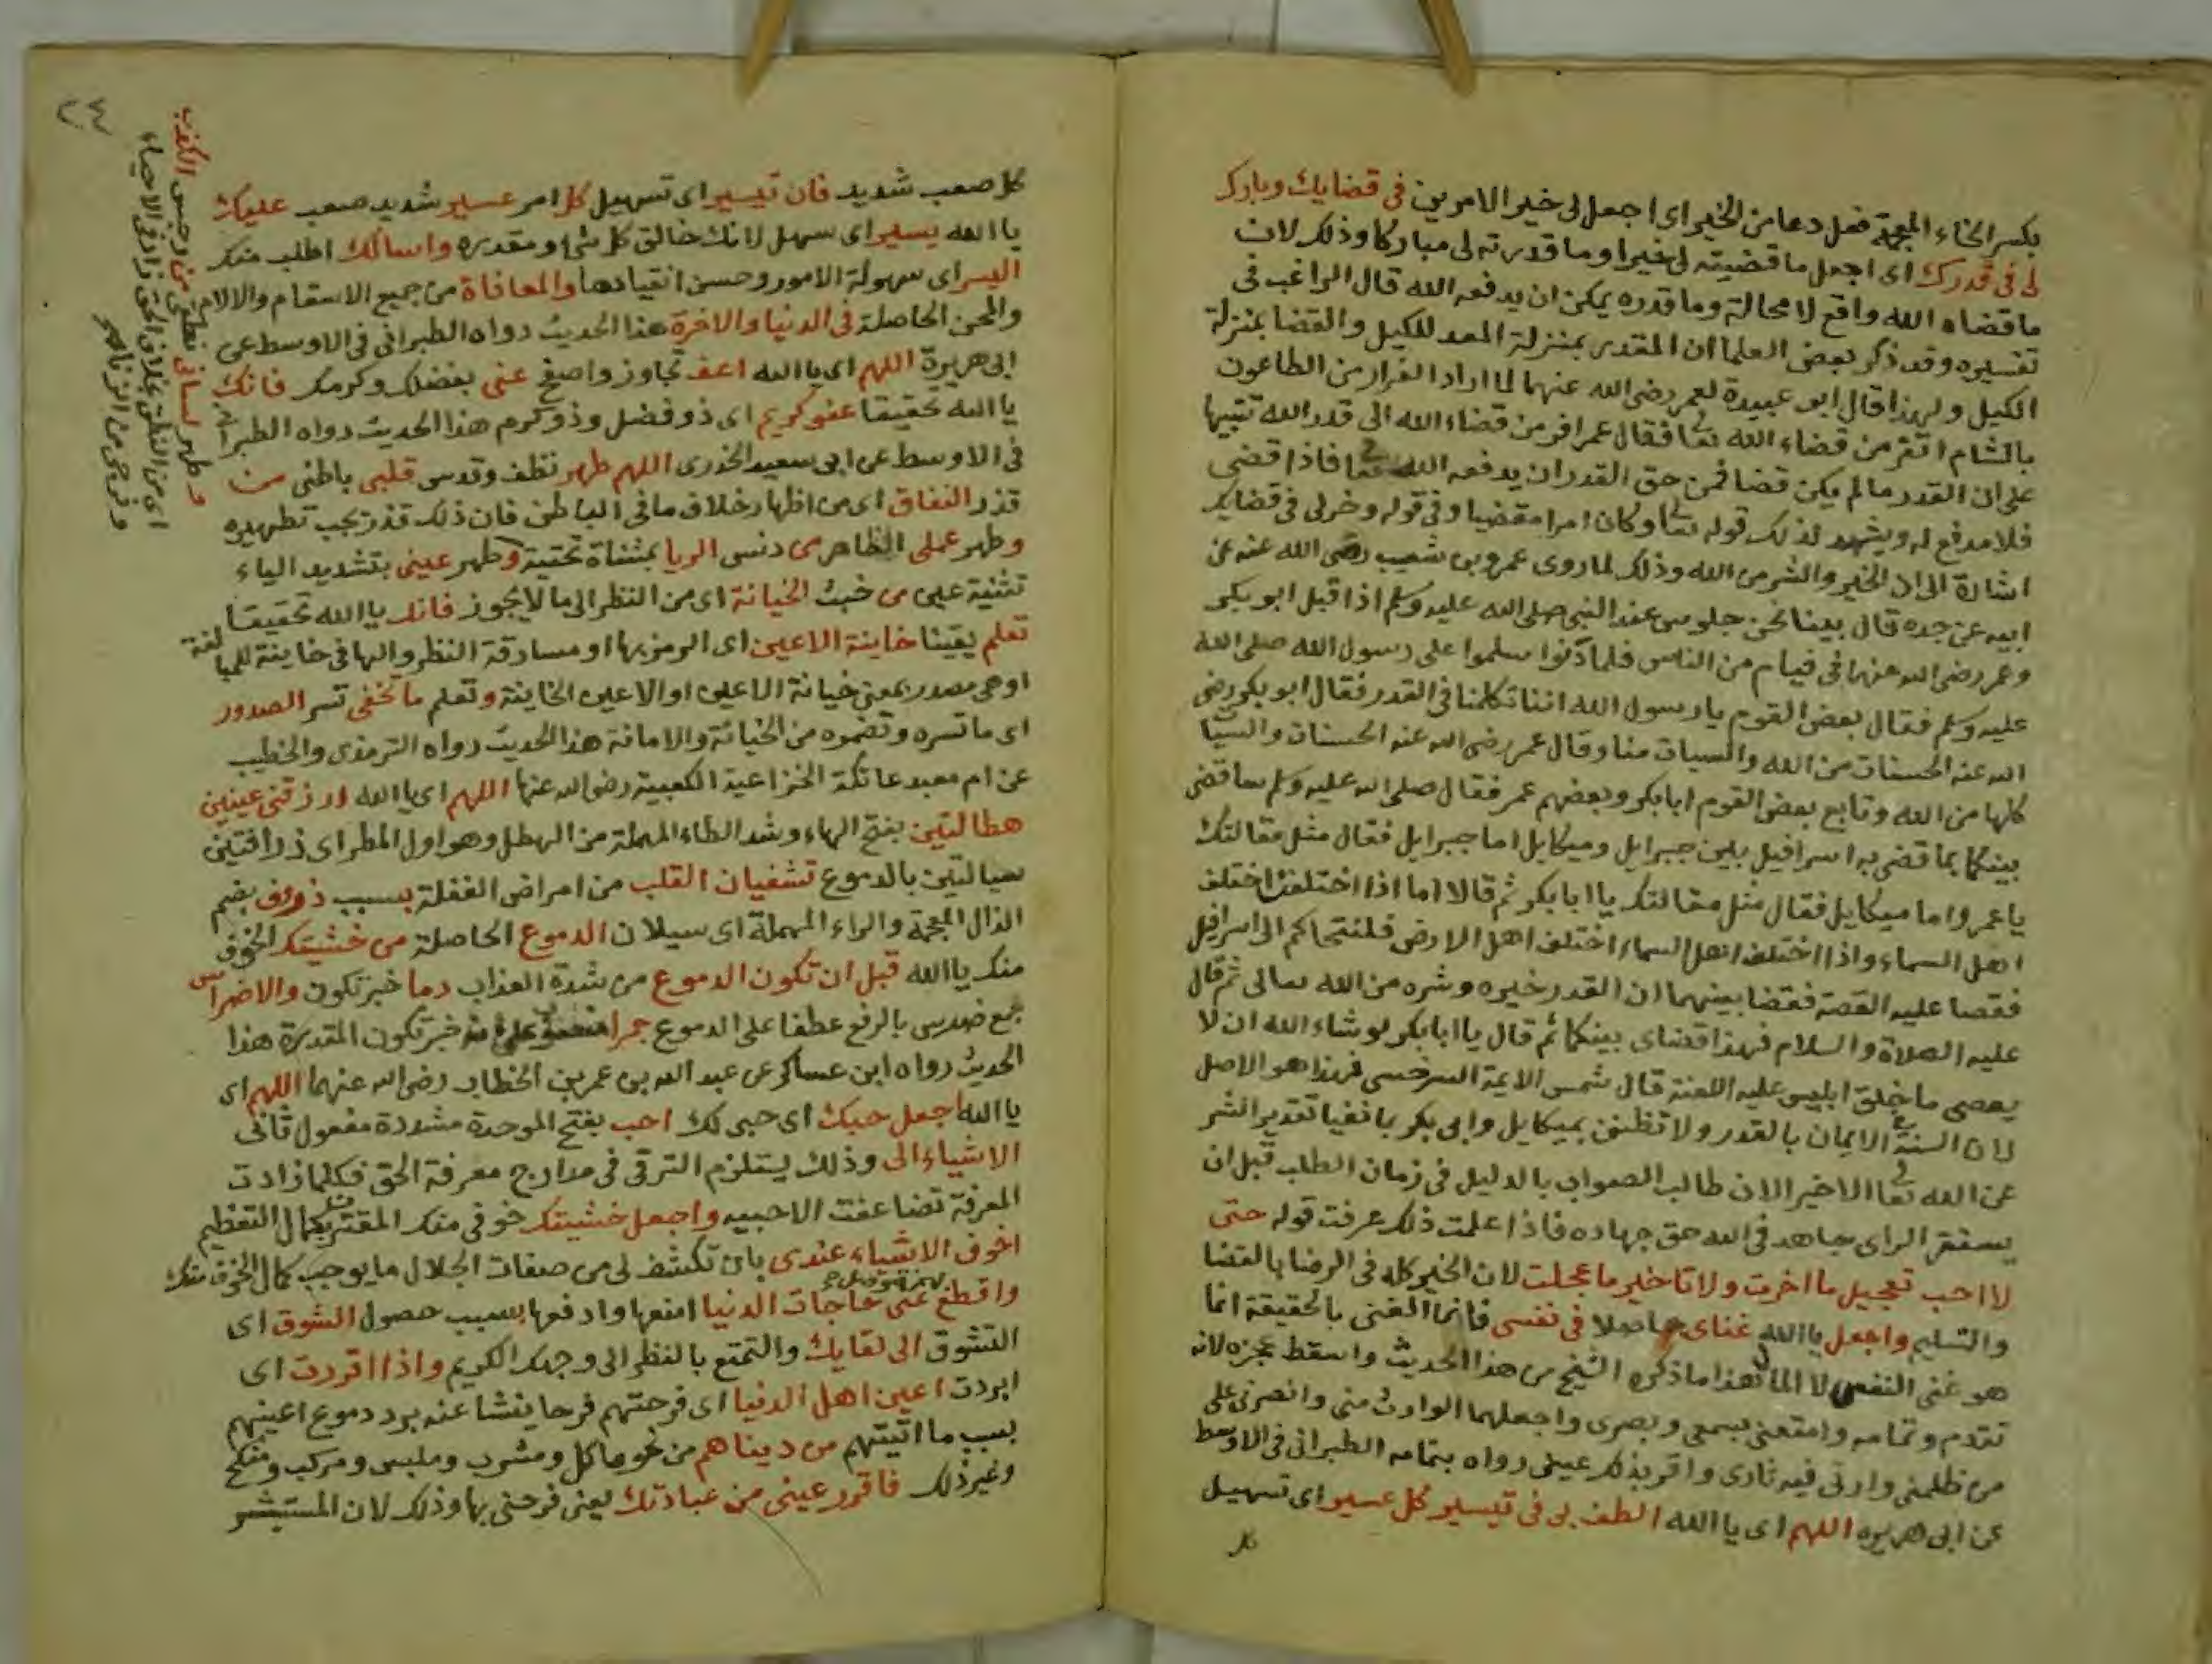 بكسر الخاء المعجمة فعل دعا من الخير اى اجعل لى خير الامرين فى قضايك وبارك
لى فى قدرك اى اجعل ما قضيته لى خيرا وما قدرته لى مباركا وذلك لان
ما قضاه الله واقع لا محالة وما قدره يمكن ان يدفعه الله قال الراغب فى
تفسيره وقد ذكر بعض العلما ان المقدر بمنزلة المعد للكيل والقضا بمنزلة
الكيل ولهذا قال ابو عبيدة لعمر رضى الله عنهما لما اراد الفرار من الطاعون
بالشام اتفر من قضاء الله تعا فقال عمر افر من قضاء الله الى قدر الله تنبيها
على ان القدر ما لم يكن قضا فمن حق القدر ان يدفعه الله تعا فاذا قضى
فلا مدفع له ويشهد لذلك قوله تعا وكان امرا مقضيا وفى قوله وخر لى فى قضايك
اشارة الى ان الخير والشر من الله وذلك لما روى عمرو بن شعيب رضى الله عنه عن
ابيه عن جده قال بينا نحن جلوس عند النبى صلى الله عليه وسلم اذا قبل ابو بكر
وعمر رضى الله عنهما فى فيام من الناس فلما دنوا سلموا على رسول الله صلى الله
عليه وسلم فقال بعض القوم يا رسول الله اننا تكلمنا فى القدر فقال ابو بكر رضى
الله عنه الحسنات من الله والسيات منا وقال عمر رضى الله عنه الحسنات والسيا
كلها من الله وتابع بعض القوم ابا بكر وبعضهم عمر فقال صلى الله عليه وسلم ساقضى
بينكما بما قضى به اسرافيل بين جبرايل وميكايل اما جبرايل فقال مثل مقالتك
يا عمر واما ميكايل فقال مثل مقالتك يا ابا بكر ثم قالا اما اذا اختلفنا اختلف
اهل السماء واذا اختلف اهل السماء اختلف اهل الارض فلنتحاكم الى اسرافيل
فقصا عليه القصة فقضا بينهما ان القدر خيره وشره من الله تعالى ثم قال
عليه الصلاة والسلام فهذا قضاى بينكما ثم قال يا ابا بكر لو شاء الله ان لا
يعصى ما خلق ابليس عليه اللعنة قال شمس الايمة السرخسى فهذا هو الاصل
لان السنة الايمان بالقدر ولا تظنن بميكايل وابى بكر بانفيا تقدير الشر
عن الله تعا الا خيرا لان طالب الصواب بالدليل فى زمان الطلب قبل ان
يستقر الراى مجاهد فى الله حق جهاده فاذا علمت ذلك عرفت قوله حتى
لا احب تعجيل ما اخرت ولا تاخير ما عجلت لان الخير كله فى الرضا بالقضا
والتسليم واجعل يا الله غناى حاصلا فى نفسى فانما الغنى بالحقيقة انما
هو غنى النفس لا المال هذا ما ذكره الشيخ من هذا الحديث واسقط عجزه لانه
تقدم وتمامه وامتعنى بسمعى وبصرى واجعلهما الوارث منى وانصرنى على
من ظلمنى وارنى فيه ثارى واقر بذلك عينى رواه بتمامه الطبرانى فى الاوسط
عن ابى هريره اللهم اى يا الله الطف بى فى تيسير كل عسير اى تسهيل
كل
٢٤
كل صعب شديد فان تيسير اى تسهيل كل امر عسير شديد صعب عليك
يا الله يسير اى سهل لانك خالق كل شئ ومقدره واسالك اطلب منك
اليسر اى سهولة الامور وحسن انقيادها والمعافاة من جميع الاسقام والالام
والمحن الحاصلة فى الدنيا والاخرة هذا الحديث رواه الطبرانى فى الاوسط عن
ابى هريرة اللهم اى يا الله اعف تجاوز واصفح عنى بفضلك وكرمك فانك
يا الله تحقيقا عفو كريم اى ذو فضل وذو كرم هذا الحديث رواه الطبرانى
فى الاوسط عن ابى سعيد الخدرى اللهم طهر نظف وقدس قلبى باطنى من
قذر النفاق اى من اظهار خلاف ما فى الباطن فان ذلك قذر يجب تطهيره
وطهر عملى الظاهر من دنس الريا بمثناة تحتية وطهر عينى بتشديد الياء
تثنية عين من خبث الخيانة اى من النظر الى ما لا يجوز فانك يا الله تحقيقا
تعلم يقينا خاينة الاعين اى الرمز بها او مسارقة النظر والها فى خاينة للمبالغة
او هى مصدر بمعنى خيانة الاعين او الاعين الخاينة وتعلم ما تخفى تسر الصدور
اى ما تسره وتضمره من الخيانة والامانة هذا الحديث رواه الترمذى والخطيب
عن ام معبد عاتكة الخزاعية الكعبية رضى الله عنها اللهم اى يا الله ارزقنى عينين
هطالتين بفتح الهاء وشد الطاء المهملة من الهطل وهو اول المطر اى ذرافتين
سيالتين بالدموع تشفيان القلب من امراض الغفلة بسبب ذروف بضم
الذال المعجمة والراء المهملة اى سيلان الدموع الحاصلة من خشيتك الخوف
منك يا الله قبل ان تكون الدموع من شدة العذاب دما خبر تكون والاضراس
جمع ضرس بالرفع عطفا على الدموع جمرا خبر تكون المقدرة هذا
الحديث رواه ابن عساكر عن عبد الله بن عمر بن الخطاب رضى الله عنهما اللهم اى
يا الله اجعل حبك اى حبى لك احب بفتح الموحدة مشددة مفعول ثانى
الاشياء الى وذلك يستلزم الترقى فى مدارج معرفة الحق فكلما زادت
المعرفة تضاعفت الاحبيه واجعل خشيتك خوفى منك المقترن بكمال التعظيم
اخوف الاشياء عندى بان تكشف لى من صفات الجلال ما يوجب كمال الخوف منك
واقطع عنى حاجات الدنيا امنعها وادفعها بسبب حصول الشوق اى
التشوق الى لقايك والتمتع بالنظر الى وجهك الكريم واذا اقررت اى
ابردت اعين اهل الدنيا اى فرحتهم فرحا ينشا عنه برد دموع اعينهم
بسبب ما اتيتهم من دنياهم من نحو ماكل ومشرب وملبس ومركب ومنكح
وغير ذلك فاقرر عينى من عبادتك يعنى فرحنى بها وذلك لان المستبشر
وطهر لسانى نطقى من رجس الكذب
اى من النطق بخلاف الحق زاد فى الاحياء
وفرجى من الزنا صح